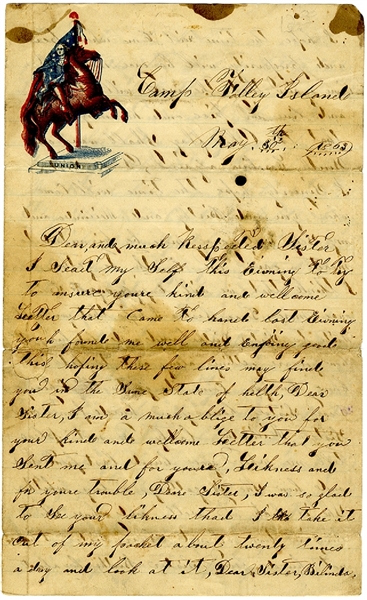 UNION
Camp Folley Island
May
Dear, and much Respected Sister
I Seat my Self this Evening to try
to answer youre kind and wellcome
Letter that Came to hand last Evening
found me well and Enjoing good
hoping these few lines may find
you in the Same State of helth Dear
Sister, I am a much ablige to you for
your kind and wellcome Letter that you
Sent me and for youre, Likness and
for youre trouble, Dear Sister, I was so glad
to See your likness that I take it
out of my pocket about twenty times
a day and look at it, Dear Sister, Belinda,